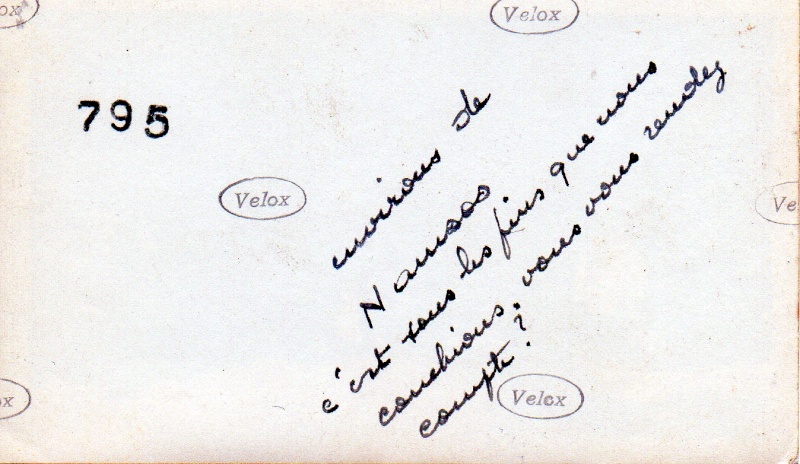 Velox
795
Velox
environs de
Namsos
c'est sous les pins que nous
couchions, vous vous rendez
compte?
Velox